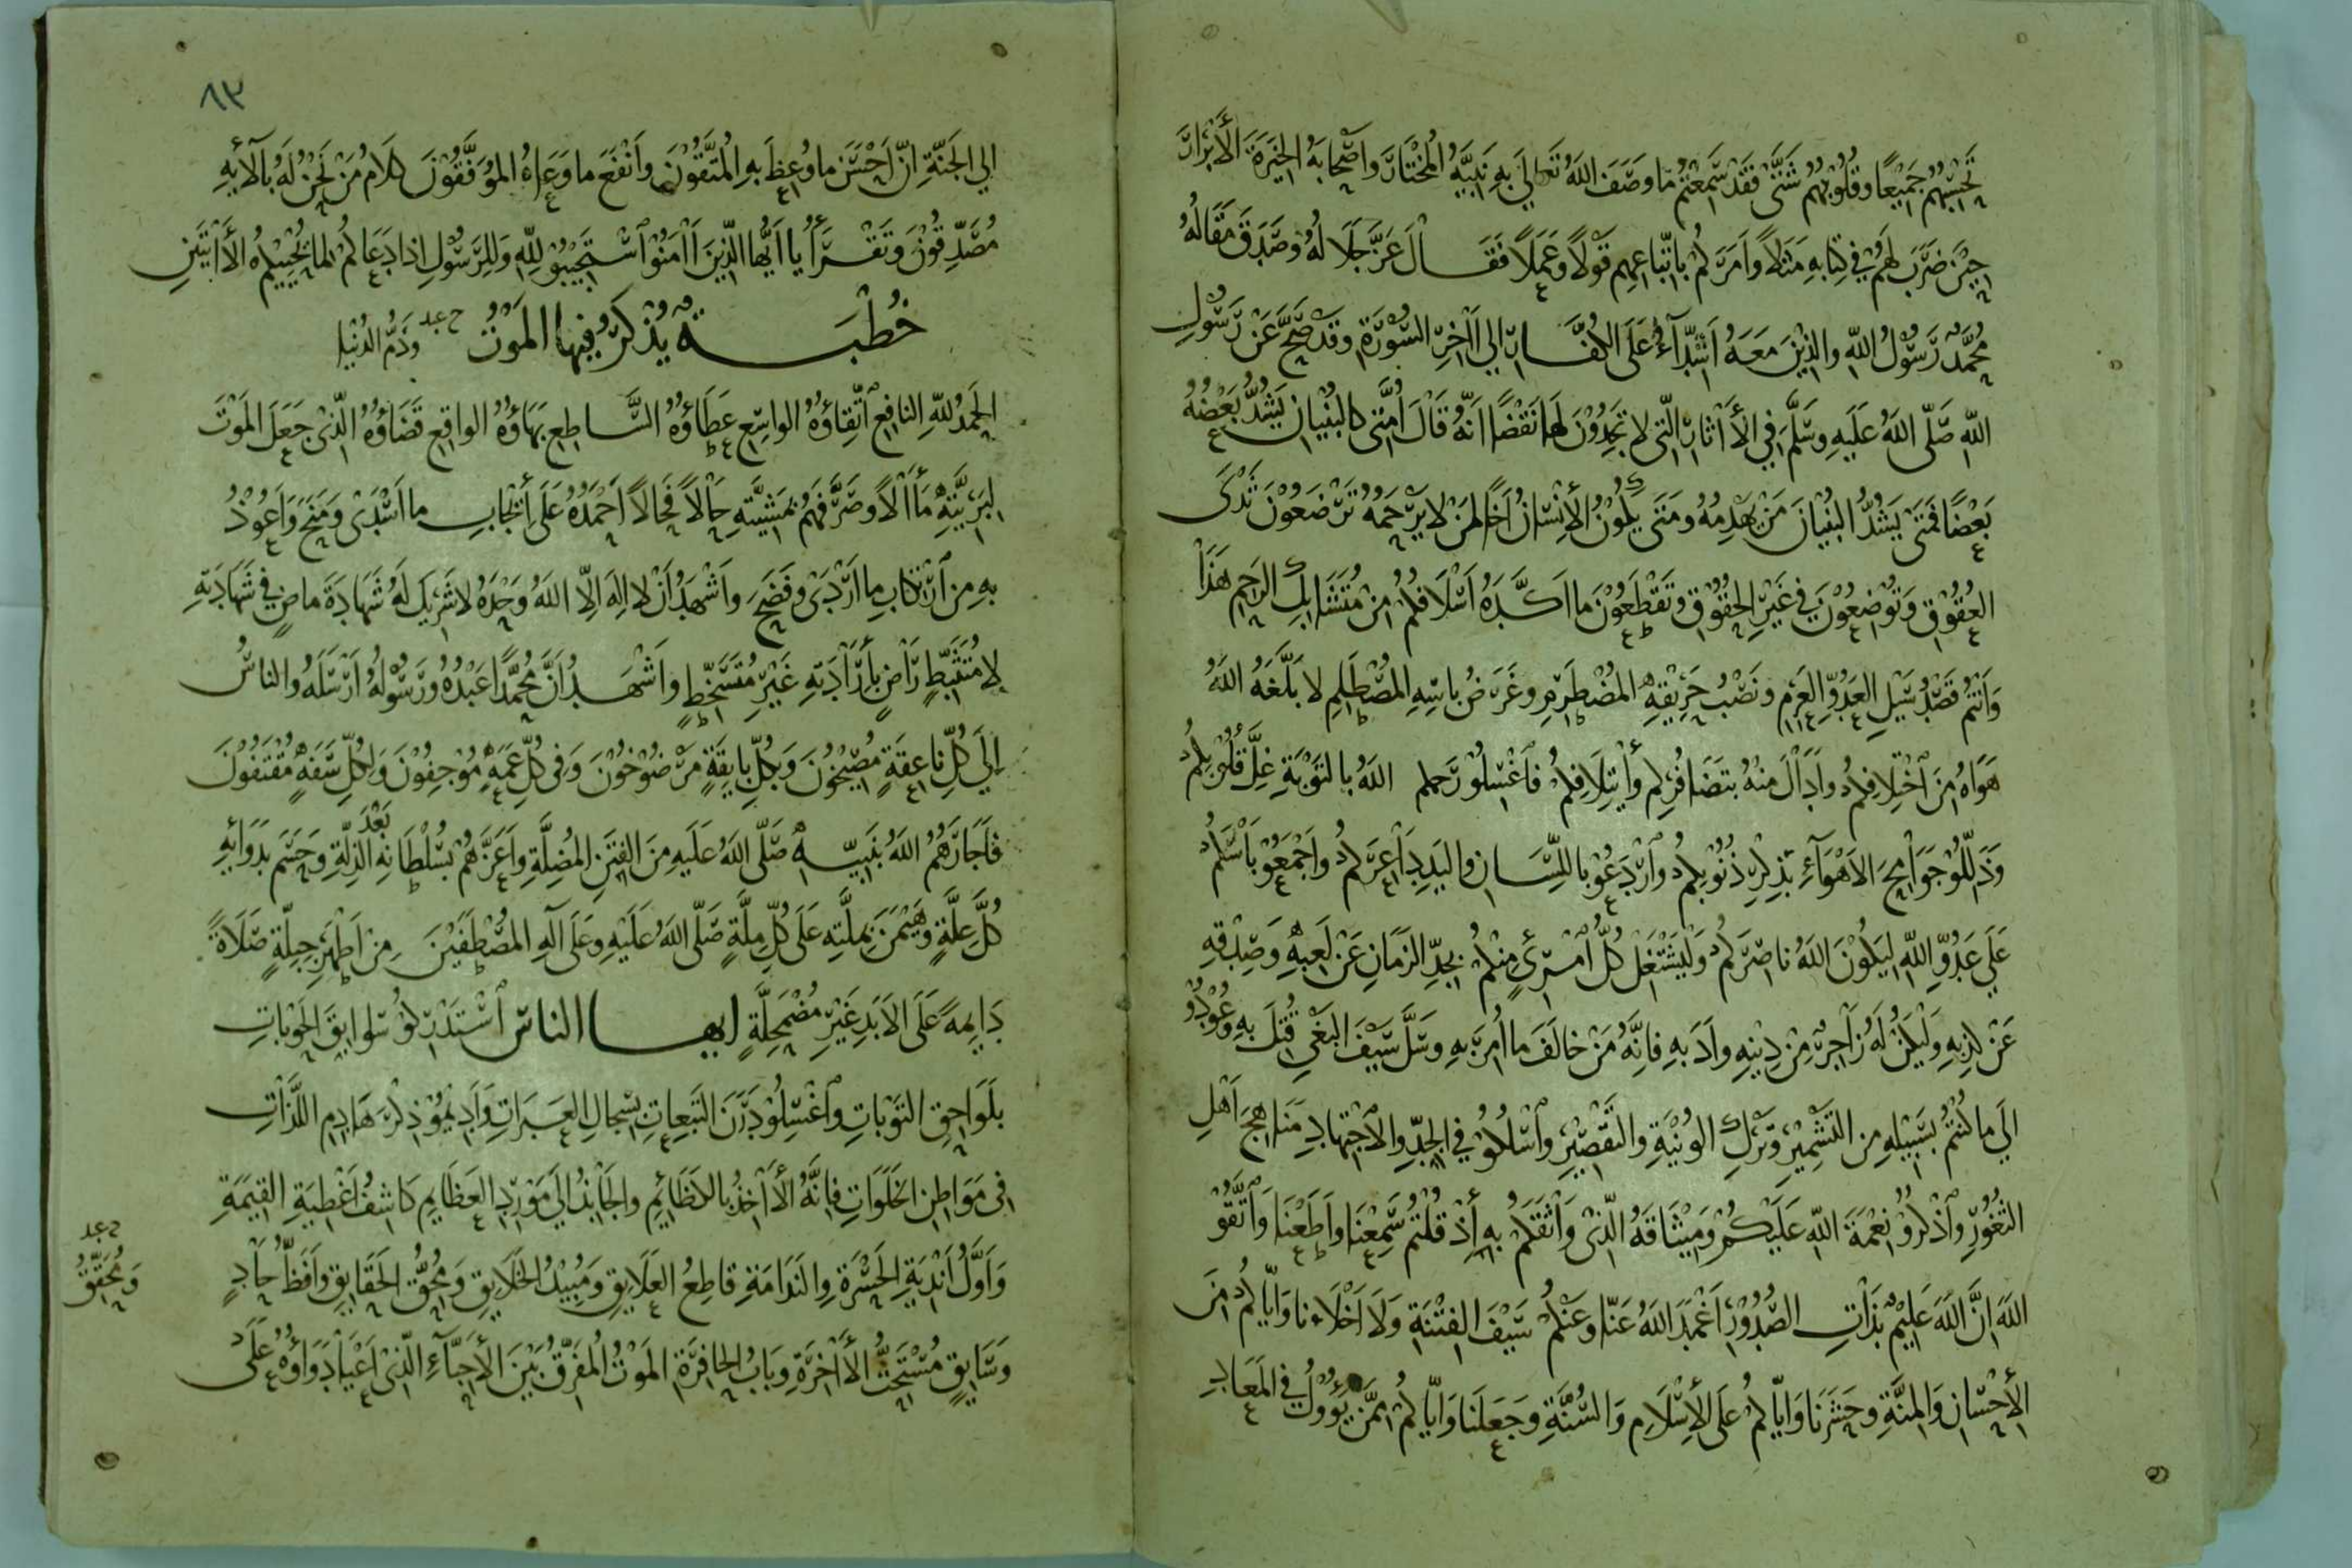 تَحْسَبُهُمْ جَمِيْعًا وقُلُوْبُهُمْ شَتَّى فَقَدْ سَمِعْتُمْ مَا وصَفَ اللهُ تَعَالَى بِهِ نَبِيَّهُ المُخْتَارَ واَصْحَابَهُ الخِيَرَةَ الأَبْرَارَ
حِيْنَ ضَرَبَ لَهُمْ فِي كِتَابِهِ مَثَلاً وَاَمَرَكُمْ بِاتِّبَاعِهِمْ قَوْلاً وعَمَلاً فَقَالَ عَزَّ جَلَالُهُ وصَدَقَ مَقَالُهُ
مُحَمَّدٌ رَسُوْلُ اللهِ والذِيْنَ مَعَهُ اَشِدَّآءُ عَلَى الكُفَّارِ الى اٰخِرِ السُّوْرَةِ وقَدْ صَحَّ عَنْ رَسُوْلِ
اللهِ صَلَّى اللهُ عَلَيهِ وسَلَّمَ فِي الأَاثَارِ الَّتِي لا تَجِدُوْنَ لَهَا نَقْضًا اَنَّهُ قَالَ اُمَّتِي كالبُنْيَانِ يَشُدُّ بَعْضُهُ
بَعْضًا فَمَتَى يَشُدُّ البُنْيَانَ مَنْ يَهْدِمُهُ ومَتَى يَكُوْنُ الأِنْسَانُ اَخًا لِمَنْ لا يَرْحَمُهُ تَرْضَعُوْنَ ثَدْىَ
العُقُوْقِ وَتُوْضِعُوْنَ فِي غَيْرِ الحُقُوْقِ وتَقْطَعُوْنَ ما اَكَّدَهُ اَسْلَافُكُمْ مِنْ مُتَشَابِكِ الرَّحِمِ هَذَا
وَاَنْتُمْ قَصْدُ سَيْلِ العَدُوِّ العَرِمِ ونَصْبُ حَرِيْقِهِ المُضْطَرِمِ وغَرَضُ بَاسِهِ المُصْطَلِمِ لا بَلَّغَهُ اللهُ
هَوَاهُ مِنَ اخْتِلَافِكُمْ واَدَالَ مِنْهُ بِتَضَافُرِكُمْ وأْتِلَافِكُمْ فَاغْسِلُوْ رَحِمَكُمُ اللهُ بِالتَوْبَةِ غِلَّ قُلُوْبِكُمْ
وَذَلِّلُوْ جَوَامِحَ الأَهْوَآءِ بِذِكْرِ ذُنُوْبِكُمْ وارْدَعُوْ بِاللِّسَانِ والْيَدِ اَعِرَّكُمْ واجْمَعُوْ بَأْسَكُمْ
عَلَى عَدُوِّ اللهِ لِيَكُوْنَ اللهُ نَاصِرَكُمْ وَلْيَشْتَغِلْ كُلُّ امْرِئٍ مِنْكُمْ بِجِدِّ الزَمَانِ عَنْ لَعِبِهِ وَصِدْقِهِ
عَنْ كِذْبِهِ وَلْيَكُنْ لَهُ زَاجِرٌ مِنْ دِيْنِهِ واَدَبِهِ فَاِنَّهُ مَنْ خالَفَ مَا اُمِرَ بِهِ وسَلَّ سَيْفَ البَغْيِ قُتِلَ بِهِ وعُوْدُوْ
اِلَى مَا كُنْتُمْ بِسَبِيْلِهِ مِنَ التَشْمِيْرِ وَتَرْكِ الوُنْيَةِ والتَقْصِيْرِ واسْلُكُوْ فِي الجِدِّ والاجْتِهَادِ مَنَاهِجَ اَهْلِ
الثُغُوْرِ واذْكُرُوْ نِعْمَةَ اللهِ عَلَيْكُمْ ومِيْثَاقَهُ الَّذِىْ وَاثَقَكُمْ بِهِ اِذْ قُلْتُمْ سَمِعْنَا واَطَعْنَا وَاتَّقُوْ
اللهَ اِنَّ اللهَ عَلِيْمٌ بِذَاتِ الصُّدُوْرِ اَغْمَدَ اللهُ عَنَّا وعَنْكُمْ سَيْفَ الفِتْنَةِ وَلَا اَخْلَانَا وَاِيَّاكُمْ مِنَ
الأِحْسَانِ وَالمِنَّةِ وحَشَرَنَا وَاِيَّاكُمْ عَلَى الأِسْلَامِ وَالسُّنَّةِ وجَعَلَنَا وَاِيَّاكُمْ مِمَّنْ يَؤُوْلُ فِي المَعَادِ
٨٣
الى الجَنَّةِ اِنَّ اَحْسَنَ ما وُعِظَ بِهِ المُتَّقُوْنَ واَنْفَعَ ما وَعَاهُ المُوَفَّقُوْنَ كَلَامُ مَنْ نَحْنُ لَهُ بِآلَائِهِ
مُصَدِّقُوْنَ وَتَقْرَأُ يا اَيُّهَا الَّذِيْنَ اٰمَنُوْا اسْتَجِيْبُوْ لِلهِ وَلِلرَسُوْلِ اِذَا دَعَاكُمْ لِمَا يُحْيِيْكُمْ الأَيَتَيْنِ
خُطْبَةٌ يُذْكَرُ فِيْهَا المَوْتُ وَذَمُّ الدُنْيَا
الحَمْدُ للهِ النافِعِ اتِّقَاؤُهُ الواسِعِ عَطَاؤُهُ السَّاطِعِ بَهَاؤُهُ الواقِعِ قَضَاؤُهُ الَّذِىْ جَعَلَ المَوْتَ
لِبَرِيَّتِهِ مَأَالاً وصَرَّفَهُمْ بِمَشِيَّتِهِ حَالاً فَحَالاً اَحْمَدُهُ عَلَى ما اَسْدَىْ ومَنَحَ وَاَعُوْذُ
بِهِ مِنِ ارْتِكَابِ مَا اَرْدَىْ وفَضَحَ واَشْهَدُ اَنْ لا اِلهَ اِلاَّ اللهُ وَحْدَهُ لا شَرِيْكَ لَهُ شَهَادَةَ ماضٍ فِي شَهَادَتِهِ
لا مُتَثَبِّطٍ رَاضٍ بِاِرَادَتِهِ غَيْرِ مُتَسَخِّطٍ واَشْهَدُ اَنَّ مُحَمَّدًا عَبْدُهُ ورَسُوْلُهُ اَرْسَلَهُ والناسُ
اِلَى كُلِّ نَاعِقَةٍ مُصِيْخُوْنَ وَبِكُلِّ بَايِقَةٍ مَرْضُوْخُوْنَ وَفِي كُلِّ عَمَهٍ مُوْجِفُوْنَ وَلِكُلِّ سَفَهٍ مُقْتَفُوْنَ
فَاَجَارَهُمُ اللهُ بِنَبِيِّهِ صَلَّى اللهُ عَلَيهِ مِنَ الفِتَنِ المُضِلَّةِ وَاَعَزَّهُمْ بِسُلْطَانِهِ بَعْدَ الذِلَّةِ وَحَسَمَ بِدَوَائِهِ
كُلَّ عِلَّةٍ وهَيْمَنَ بِمِلَّتِهِ عَلَى كُلِّ مِلَّةٍ صَلَّى اللهُ عَلَيْهِ وعَلَى آلِهِ المُصْطَفَيْنَ مِنْ اَطْهَرِ جِبِلَّةٍ صَلَاةً
دَايِمَةً عَلَى الأَبَدِ غَيْرَ مُضْمَحِلَّةٍ ايها الناسُ اسْتَدْرِكُوْ سَوابِقَ الحَوْبَاتِ
بِلَوَاحِقِ التَوْبَاتِ واغْسِلُوْ دَرَنَ التَبِعَاتِ بِسِجَالِ العَبَرَاتِ وَاَدِيْمُوْ ذِكْرَ هَادِمِ اللَّذَّاتِ
فِي مَوَاطِنِ الخَلَوَاتِ فَاِنَّهُ الأَاخِذُ بِالكَظَائِمِ والجَابِذُ اِلَى مَوْرِدِ العَظَايِمِ كَاشِفُ اَغْطِيَةِ القِيَمَةِ
وَاَوَّلُ اَنْدِيَةِ الحَسْرَةِ والنَدَامَةِ قَاطِعُ العَلَايِقِ وَمُبِيْدُ الخَلَايِقِ وَمُحِقُّ الحَقَايِقِ وَاَفَظُّ حَادٍ
وَمُحَقِّقُ
وَسَايِقٍ مُسْتَحَثُّ الأَاخِرَةِ وَبَابُ الحَافِرَةِ المَوْتُ المُفَرِّقُ بَيْنَ الأَحِبَّآءِ الَّذِىْ اَعْيَا دَوَاؤُهُ عَلَىْ